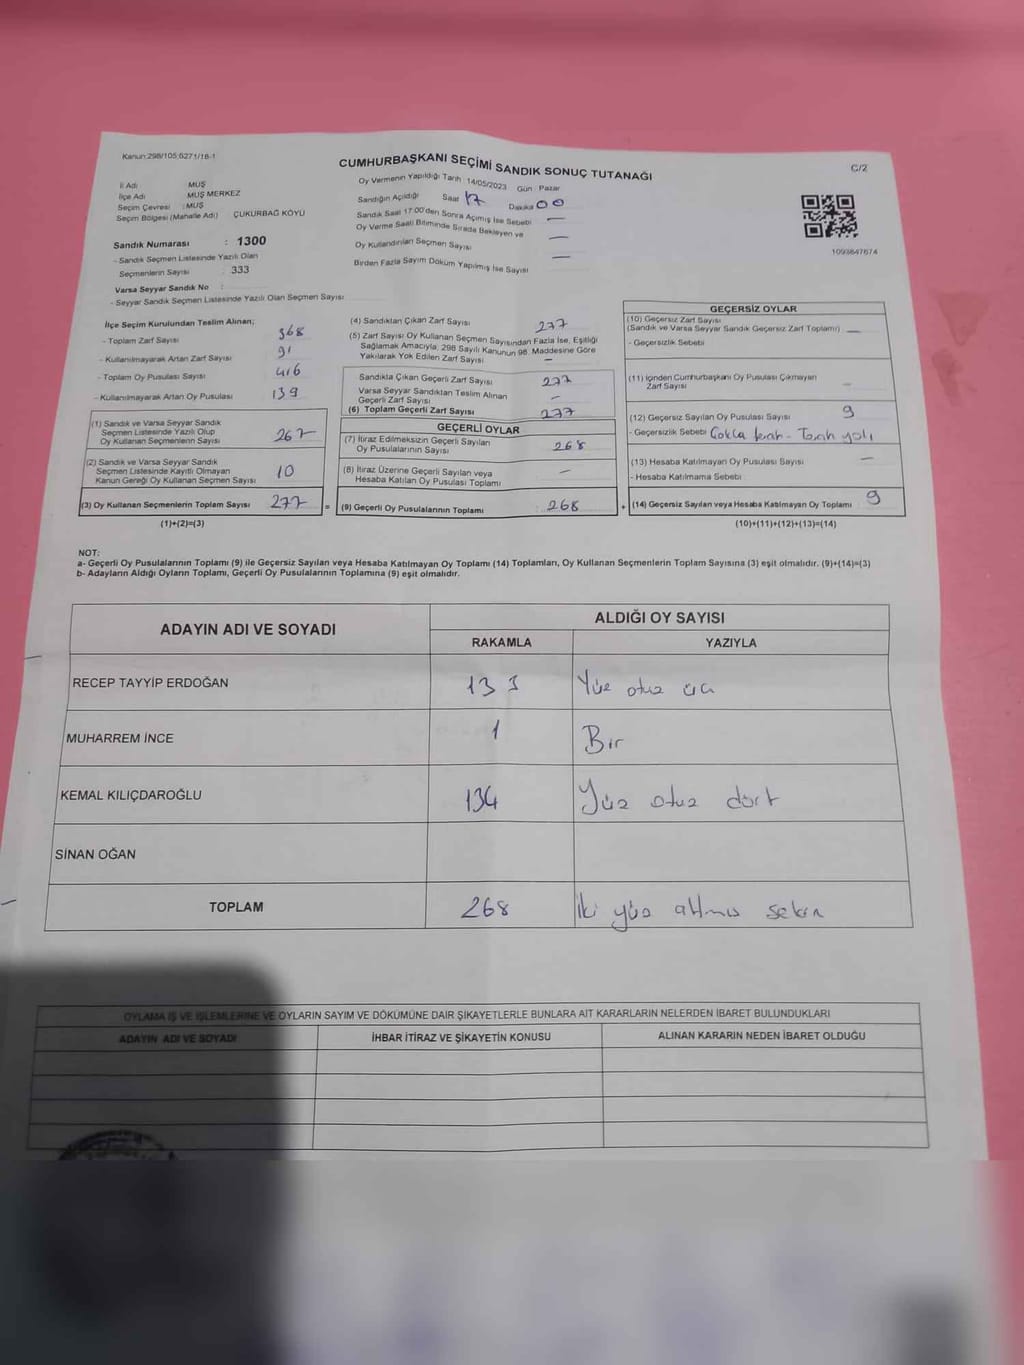 Kanun:298/105;6271/16-1
CUMHURBAŞKANI SEÇİMİ SANDIK SONUÇ TUTANAĞI
C/2
İl Adı MUŞ
İlçe Adı MUŞ MERKEZ
Seçim Çevresi : MUŞ
Seçim Bölgesi (Mahalle Adı) ÇUKURBAĞ KÖYÜ
Sandık Numarası : 1300
- Sandık Seçmen Listesinde Yazılı Olan
Seçmenlerin Sayısı : 333
Varsa Seyyar Sandık No :
- Seyyar Sandık Seçmen Listesinde Yazılı Olan Seçmen Sayısı:
Oy Vermenin Yapıldığı Tarih : 14/05/2023 Gün : Pazar
Sandığın Açıldığı Saat 17 Dakika 00
Sandık Saat 17:00'den Sonra Açılmış İse Sebebi —
Oy Verme Saati Bitiminde Sırada Bekleyen ve
Oy Kullandırılan Seçmen Sayısı —
Birden Fazla Sayım Döküm Yapılmış İse Sayısı —
1093647674
İlçe Seçim Kurulundan Teslim Alınan;
- Toplam Zarf Sayısı 368
- Kullanılmayarak Artan Zarf Sayısı 91
- Toplam Oy Pusulası Sayısı 416
- Kullanılmayarak Artan Oy Pusulası 139
(1) Sandık ve Varsa Seyyar Sandık
Seçmen Listesinde Yazılı Olup
Oy Kullanan Seçmenlerin Sayısı 267
(2) Sandık ve Varsa Seyyar Sandık
Seçmen Listesinde Kayıtlı Olmayan
Kanun Gereği Oy Kullanan Seçmen Sayısı 10
(3) Oy Kullanan Seçmenlerin Toplam Sayısı 277
(1)+(2)=(3)
(4) Sandıktan Çıkan Zarf Sayısı 277
(5) Zarf Sayısı Oy Kullanan Seçmen Sayısından Fazla İse, Eşitliği
Sağlamak Amacıyla, 298 Sayılı Kanunun 98. Maddesine Göre
Yakılarak Yok Edilen Zarf Sayısı —
Sandıkta Çıkan Geçerli Zarf Sayısı 277
Varsa Seyyar Sandıktan Teslim Alınan
Geçerli Zarf Sayısı —
(6) Toplam Geçerli Zarf Sayısı 277
GEÇERLİ OYLAR
(7) İtiraz Edilmeksizin Geçerli Sayılan
Oy Pusulalarının Sayısı 268
(8) İtiraz Üzerine Geçerli Sayılan veya
Hesaba Katılan Oy Pusulası Toplamı —
= (9) Geçerli Oy Pusulalarının Toplamı : 268
GEÇERSİZ OYLAR
(10) Geçersiz Zarf Sayısı
(Sandık ve Varsa Seyyar Sandık Geçersiz Zarf Toplamı) —
- Geçersizlik Sebebi
(11) İçinden Cumhurbaşkanı Oy Pusulası Çıkmayan
Zarf Sayısı —
(12) Geçersiz Sayılan Oy Pusulası Sayısı 9
- Geçersizlik Sebebi
(13) Hesaba Katılmayan Oy Pusulası Sayısı —
- Hesaba Katılmama Sebebi
+ (14) Geçersiz Sayılan veya Hesaba Katılmayan Oy Toplamı 9
(10)+(11)+(12)+(13)=(14)
NOT:
a- Geçerli Oy Pusulalarının Toplamı (9) ile Geçersiz Sayılan veya Hesaba Katılmayan Oy Toplamı (14) Toplamları, Oy Kullanan Seçmenlerin Toplam Sayısına (3) eşit olmalıdır. (9)+(14)=(3)
b- Adayların Aldığı Oyların Toplamı, Geçerli Oy Pusulalarının Toplamına (9) eşit olmalıdır.
ADAYIN ADI VE SOYADI
ALDIĞI OY SAYISI
RAKAMLA YAZIYLA
RECEP TAYYİP ERDOĞAN 133 Yüz otuz üç
MUHARREM İNCE 1 Bir
KEMAL KILIÇDAROĞLU 134 Yüz otuz dört
SİNAN OĞAN
TOPLAM 268 İki yüz altmış sekiz
OYLAMA İŞ VE İŞLEMLERİNE VE OYLARIN SAYIM VE DÖKÜMÜNE DAİR ŞİKAYETLERLE BUNLARA AİT KARARLARIN NELERDEN İBARET BULUNDUKLARI
ADAYIN ADI VE SOYADI İHBAR İTİRAZ VE ŞİKAYETİN KONUSU ALINAN KARARIN NEDEN İBARET OLDUĞU